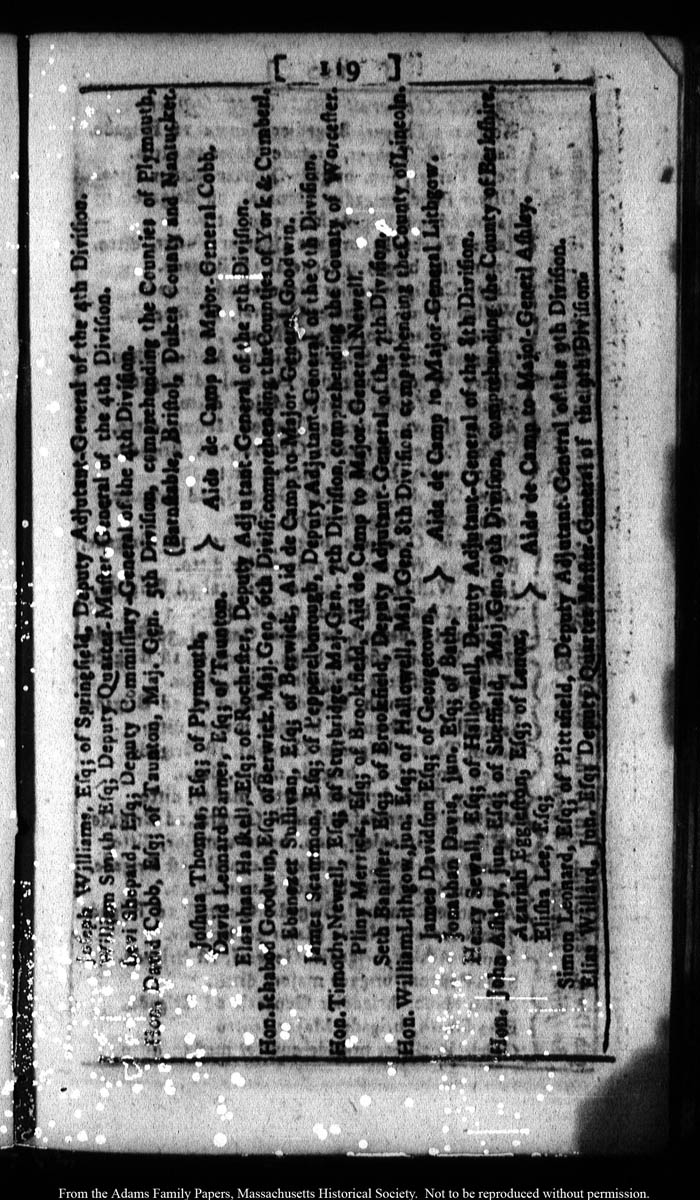 [ 119 ]
Joseph Williams, Esq; of Springfield, Deputy Adjutant-General of the 4th Division.
William Smith Esq; Deputy Quarter-Master-General of the 4th Division.
Levi Shepard, Esq; Deputy Commissary-General of the 4th Division.
Hon. David Cobb, Esq; of Taunton, Maj. Gen. 5th Division, comprehending the Counties of Plymouth,
[Barnstable, Bristol, Dukes County and Nantucket.
Joshua Thomas, Esq; of Plymouth,
David Leonard Barnes, Esq; of Taunton. } Aids de Camp to Major-General Cobb.
Elnathan Haskell, Esq; of Rochester, Deputy Adjutant-General of the 5th Division.
Hon. Ichabod Goodwin, Esq; of Berwick. Maj. Gen. 6th Divisi. comprehending the Counties of York & Cumbed.
Ebenezer Sullivan, Esq; of Berwick, Aid de Camp to Major-General Goodwin.
James Esq; of Pepperelborough, Deputy Adjutant-General of the 6th Division.
Hon. Timothy Newell, Esq; of Sturbridge. Maj. Gen. 7th Division, comprehending the County of Worcester.
Pliny Merrick, Esq; of Brookfield, Aid de Camp to Major-General Newell.
Seth Banister, Esq; of Brookfield, Deputy Adjutant-General of the 7th Division.
Hon. William Lithgow, jun. Esq; of Hallowell, Maj. Gen. 8th Division, comprehending the County of Lincoln.
James Davidson Esq; of Georgetown,
Jonathan Davis, jun. Esq; of Bath, } Aids de Camp to Major-General Lithgow.
Henry Sewall, Esq; of Hallowell, Deputy Adjutant-General of the 8th Division.
Hon. John Ashley, jun. Esq; of Sheffield, Maj. Gen. 9th Division, comprehending the County of Berkshire.
Azariah Eggleston, Esq; of Lenox,
Elisha Lee, Esq; } Aids de Camp to Major-General Ashley.
Simon Leonard, Esq; of Pittsfield, Deputy Adjutant-General of the 9th Division.
Elias Willard, Jun. Esq; Deputy Quarter Master-General of the 9th Division.
From the Adams Family Papers, Massachusetts Historical Society. Not to be reproduced without permission.